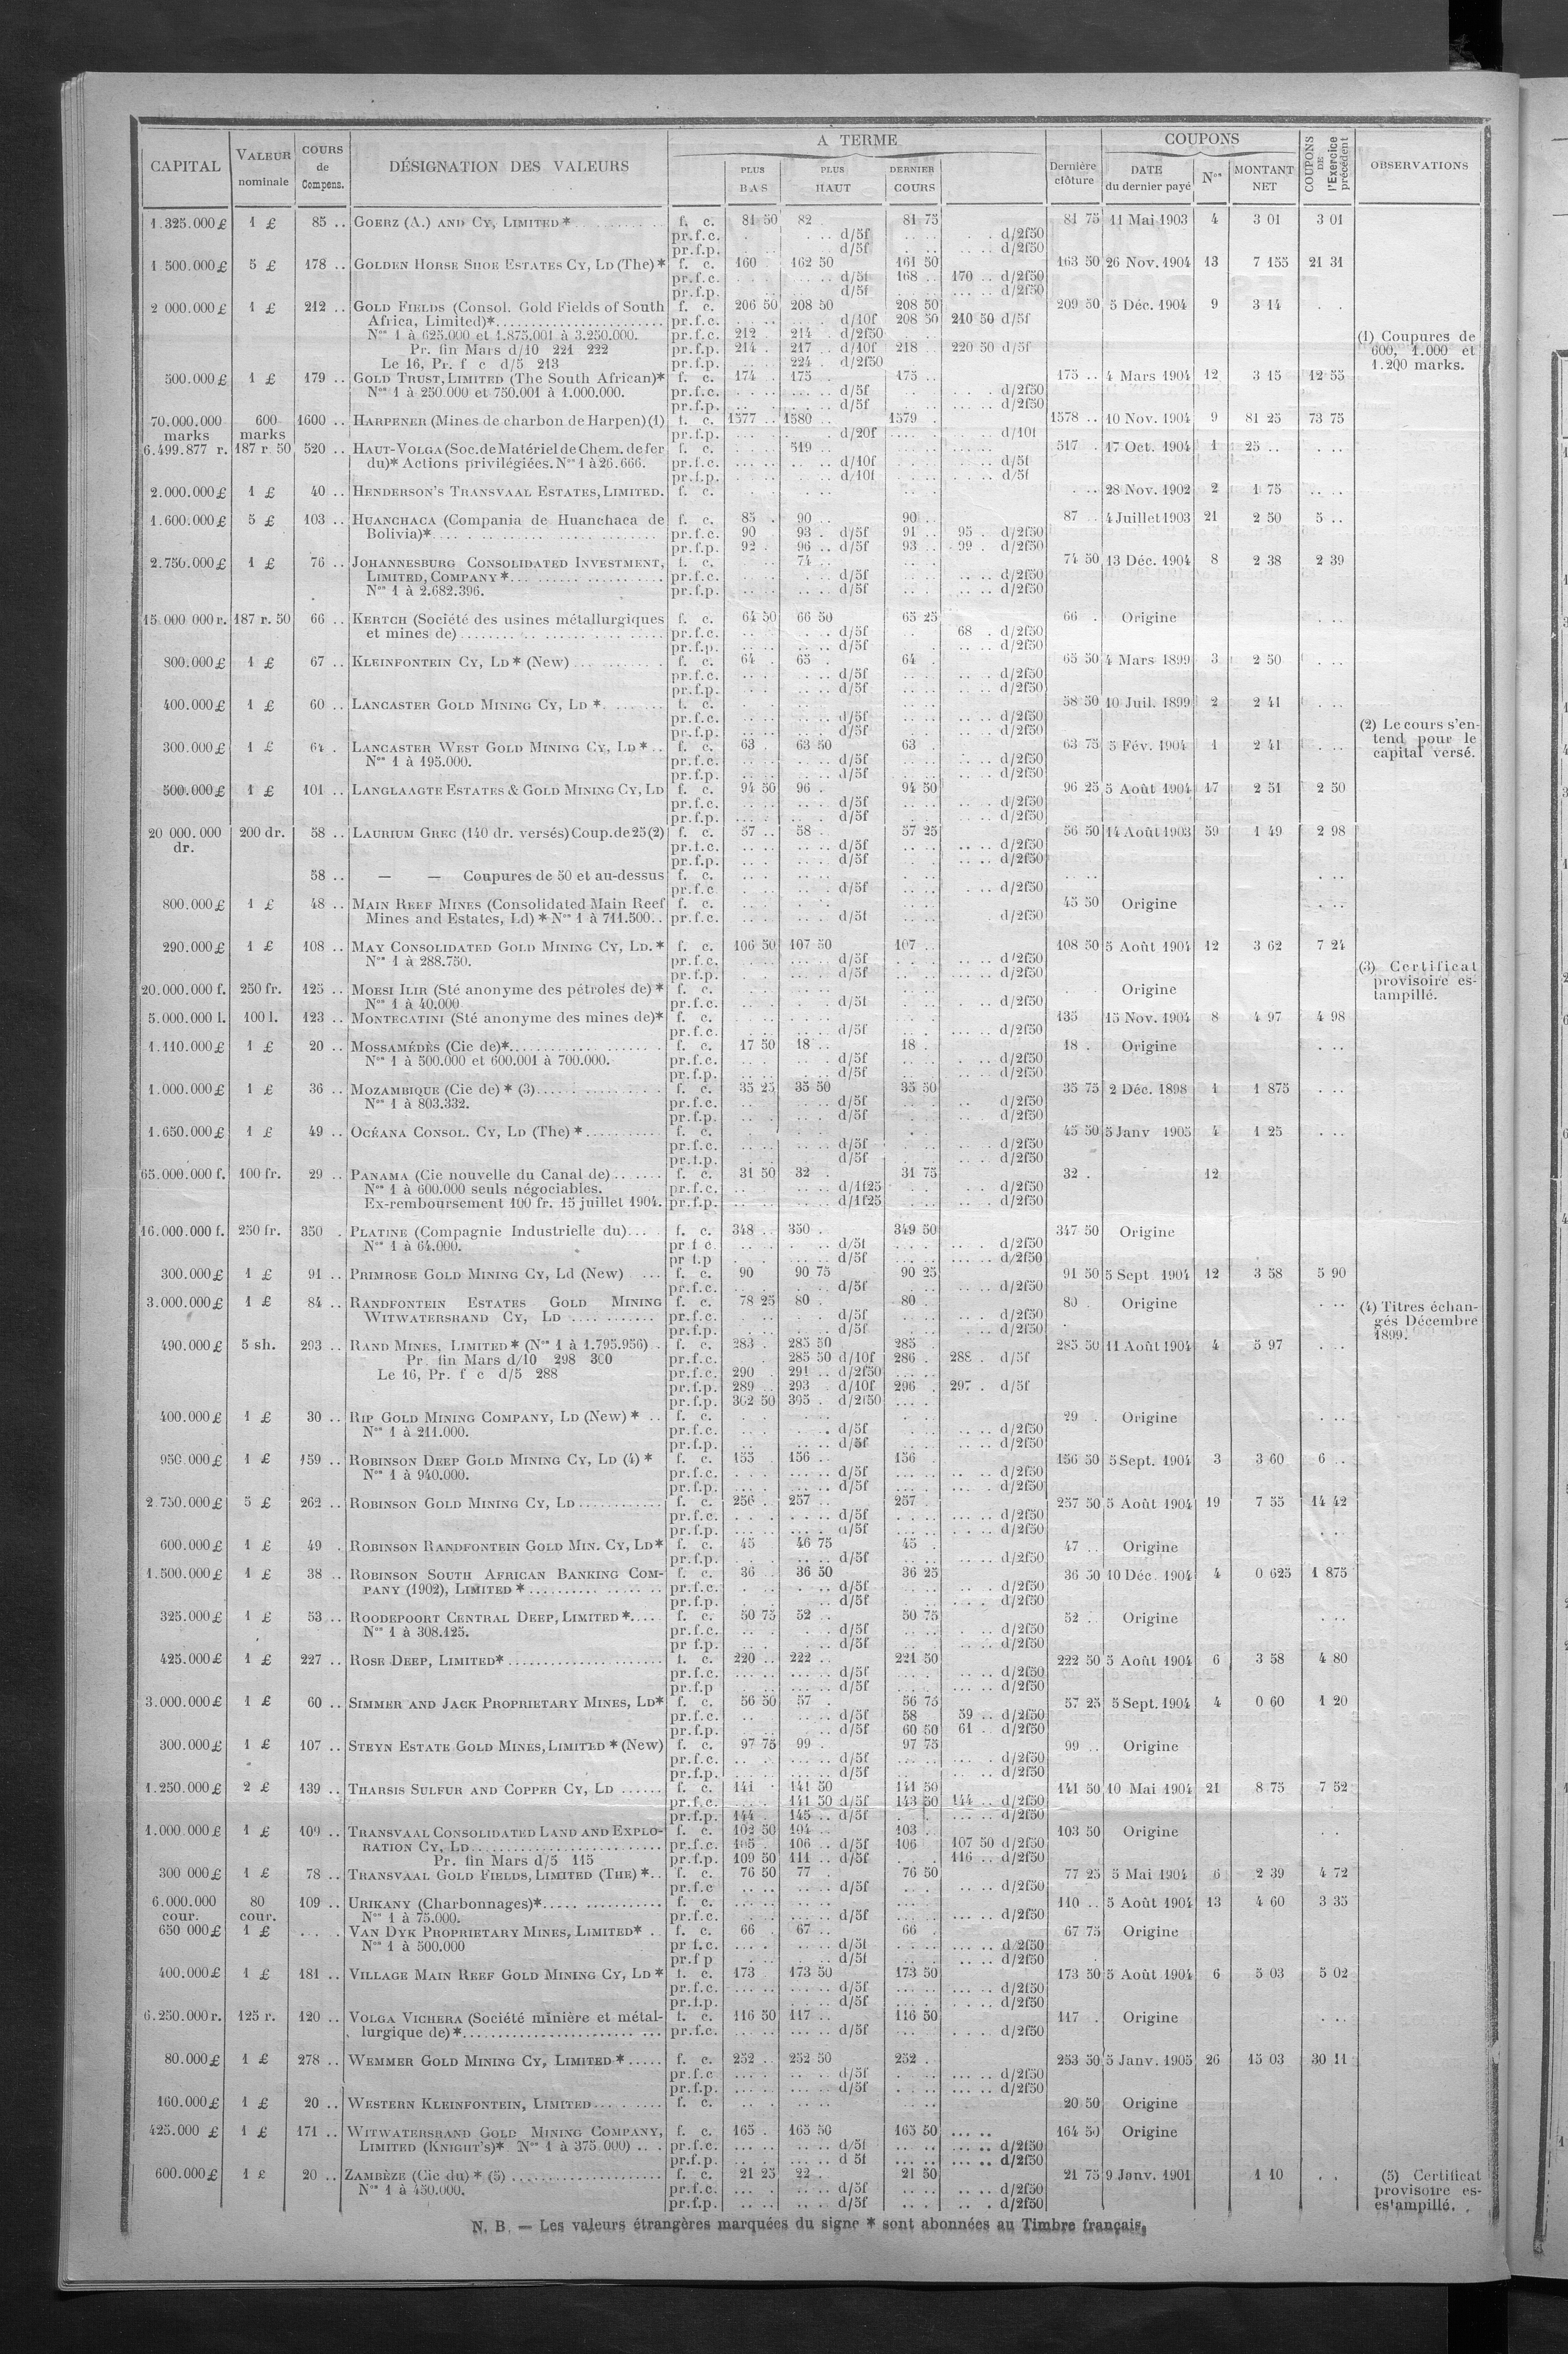 CAPITAL | VALEUR nominale | COURS de Compens. | DÉSIGNATION DES VALEURS | A TERME | PLUS BAS | PLUS HAUT | DERNIER COURS | Dernière clôture | COUPONS | DATE du dernier payé | Nos | MONTANT NET | COUPONS DE l'Exercice précédent | OBSERVATIONS
1.325.000 £ 1 £ 85 .. GOERZ (A.) AND CY, LIMITED * f. c. 81 50 82 . 81 75 81 75 11 Mai 1903 4 3 01 3 01
pr.f.c. d/5f d/2f50
pr.f.p. d/5f d/2f50
1 500.000 £ 5 £ 178 .. GOLDEN HORSE SHOE ESTATES CY, LD (The) * f. c. 160 162 50 161 50 163 50 26 Nov. 1904 13 7 155 21 31
pr.f.c. d/5f 168 .. 170 .. d/2f50
pr.f.p. d/5f d/2f50
2 000.000 £ 1 £ 212 .. GOLD FIELDS (Consol. Gold Fields of South f. c. 206 50 208 50 208 50 209 50 5 Déc. 1904 9 3 14
Africa, Limited)* pr.f.c. d/10f 208 50 210 50 d/5f
Nos 1 à 625.000 et 1.875.001 à 3.250.000. pr.f.c. 212 214 . d/2f50
Pr. fin Mars d/10 221 222 pr.f.p. 214 . 217 .. d/10f 218 .. 220 50 d/5f
Le 16, Pr. f c d/5 213 pr.f.p. 224 . d/2f50
(1) Coupures de
600, 1.000 et
1.200 marks.
500.000 £ 1 £ 179 .. GOLD TRUST, LIMITED (The South African)* f. c. 174 . 175 . 175 .. 175 .. 4 Mars 1904 12 3 15 12 55
Nos 1 à 250 000 et 750.001 à 1.000.000. pr.f.c. d/5f d/2f50
pr.f.p. d/5f d/2f50
70.000.000 600 1600 .. HARPENER (Mines de charbon de Harpen) (1) f. c. 1577 .. 1580 .. 1579 . 1578 .. 10 Nov. 1904 9 81 25 73 75
marks marks pr.f.p. d/20f d/10f
6.499.877 r. 187 r 50 520 .. HAUT-VOLGA (Soc. de Matériel de Chem. de fer f. c. 519 .. 517 . 17 Oct. 1904 1 25 ..
du)* Actions privilégiées. Nos 1 à 26.666. pr.f.c. d/10f d/5f
pr.f.p. d/10f d/5f
2.000.000 £ 1 £ 40 .. HENDERSON'S TRANSVAAL ESTATES, LIMITED. f. c. 28 Nov. 1902 2 1 75
1.600.000 £ 5 £ 103 .. HUANCHACA (Compania de Huanchaca de f. c. 85 . 90 .. 90 .. 87 .. 4 Juillet 1903 21 2 50 5 ..
Bolivia)* pr.f.c. 90 93 . d/5f 91 .. 95 . d/2f50
pr.f.p. 92 . 96 .. d/5f 93 .. 99 . d/2f50
2.750.000 £ 1 £ 76 .. JOHANNESBURG CONSOLIDATED INVESTMENT, f. c. 74 .. 74 50 13 Déc. 1904 8 2 38 2 39
LIMITED, COMPANY * pr.f.c. d/5f d/2f50
Nos 1 à 2.682.396. pr.f.p. d/5f d/2f50
15.000 000 r. 187 r. 50 66 .. KERTCH (Société des usines métallurgiques f. c. 64 50 66 50 65 25 66 . Origine
et mines de) pr.f.c. d/5f 68 . d/2f50
pr.f.p. d/5f d/2f50
800.000 £ 1 £ 67 .. KLEINFONTEIN CY, LD * (New) f. c. 64 . 65 . 64 . 65 50 4 Mars 1899 3 2 50
pr.f.c. d/5f d/2f50
pr.f.p. d/5f d/2f50
400.000 £ 1 £ 60 .. LANCASTER GOLD MINING CY, LD * f. c. 58 50 10 Juil. 1899 2 2 41
pr.f.c. d/5f d/2f50
pr.f.p. d/5f d/2f50
(2) Le cours s'en-
tend pour le
capital versé.
300.000 £ 1 £ 64 . LANCASTER WEST GOLD MINING CY, LD * f. c. 63 . 63 50 63 . 63 75 5 Fév. 1904 1 2 41
Nos 1 à 195.000. pr.f.c. d/5f d/2f50
pr.f.p. d/5f d/2f50
500.000 £ 1 £ 101 .. LANGLAAGTE ESTATES & GOLD MINING CY, LD f. c. 94 50 96 . 94 50 96 25 5 Août 1904 17 2 51 2 50
pr.f.c. d/5f d/2f50
pr.f.p. d/5f d/2f50
20 000.000 200 dr. 58 .. LAURIUM GREC (140 dr. versés) Coup. de 25 (2) f. c. 57 .. 58 . 57 25 56 50 14 Août 1903 59 1 49 2 98
dr. pr.f.c. d/5f d/2f50
pr.f.p. d/5f d/2f50
58 .. — — Coupures de 50 et au-dessus f. c.
pr.f.c. d/5f d/2f50
800.000 £ 1 £ 48 .. MAIN REEF MINES (Consolidated Main Reef f. c. 45 50 Origine
Mines and Estates, Ld) * Nos 1 à 711.500.. pr.f.c. d/5f d/2f50
290.000 £ 1 £ 108 .. MAY CONSOLIDATED GOLD MINING CY, LD. * f. c. 106 50 107 50 107 .. 108 50 5 Août 1904 12 3 62 7 24
Nos 1 à 288.750. pr.f.c. d/5f d/2f50
pr.f.p. d/5f d/2f50
(3) Certificat
provisoire es-
tampillé.
20.000.000 f. 250 fr. 125 .. MOESI ILIR (Sté anonyme des pétroles de) * f. c. Origine
Nos 1 à 40.000 pr.f.c. d/5f d/2f50
5.000.000 l. 100 l. 123 .. MONTECATINI (Sté anonyme des mines de)* f. c. 135 15 Nov. 1904 8 4 97 4 98
pr.f.c. d/5f d/2f50
1.110.000 £ 1 £ 20 .. MOSSAMÉDÈS (Cie de)* f. c. 17 50 18 .. 18 . 18 . Origine
Nos 1 à 500.000 et 600.001 à 700.000. pr.f.c. d/5f d/2f50
pr.f.p. d/5f d/2f50
1.000.000 £ 1 £ 36 .. MOZAMBIQUE (Cie de) * (3) f. c. 35 25 35 50 35 50 35 75 2 Déc. 1898 1 1 875
Nos 1 à 803.332. pr.f.c. d/5f d/2f50
pr.f.p. d/5f d/2f50
1.650.000 £ 1 £ 49 .. OCÉANA CONSOL. CY, LD (The) * f. c. 45 50 5 Janv 1905 4 1 25
pr.f.c. d/5f d/2f50
pr.f.p. d/5f d/2f50
65.000.000 f. 100 fr. 29 .. PANAMA (Cie nouvelle du Canal de) f. c. 31 50 32 . 31 75 32 . 12
Nos 1 à 600.000 seuls négociables. pr.f.c. d/1f25 d/2f50
Ex-remboursement 100 fr. 15 juillet 1904. pr.f.p. d/1f25 d/2f50
16.000.000 f. 250 fr. 350 . PLATINE (Compagnie Industrielle du) f. c. 348 .. 350 . 349 50 347 50 Origine
Nos 1 à 64.000. pr f c d/5f d/2f50
pr f.p d/5f d/2f50
300.000 £ 1 £ 91 .. PRIMROSE GOLD MINING CY, Ld (New) f. c. 90 90 75 90 25 91 50 5 Sept 1904 12 3 58 5 90
pr.f.c. d/5f d/2f50
3.000.000 £ 1 £ 84 .. RANDFONTEIN ESTATES GOLD MINING f. c. 78 25 80 . 80 . 80 Origine
WITWATERSRAND CY, LD pr.f.c. d/5f d/2f50
pr.f.p. d/5f d/2f50
(4) Titres échan-
gés Décembre
1899.
490.000 £ 5 sh. 293 .. RAND MINES, LIMITED * (Nos 1 à 1.795.956) f. c. 283 . 285 50 285 . 285 50 11 Août 1904 4 5 97
Pr. fin Mars d/10 298 300 pr.f.c. 285 50 d/10f 286 . 288 . d/5f
Le 16, Pr. f c d/5 288 pr.f.c. 290 291 .. d/2f50
pr.f.p. 289 .. 293 . d/10f 296 . 297 . d/5f
pr.f.p. 302 50 305 . d/2f50
400.000 £ 1 £ 30 .. RIP GOLD MINING COMPANY, LD (New) * f. c. 29 . Origine
Nos 1 à 211.000. pr.f.c. d/5f d/2f50
pr.f.p. d/5f d/2f50
950.000 £ 1 £ 159 .. ROBINSON DEEP GOLD MINING CY, LD (4) * f. c. 155 156 .. 156 . 156 50 5 Sept. 1904 3 3 60 6 ..
Nos 1 à 940.000. pr.f.c. d/5f d/2f50
pr.f.p. d/5f d/2f50
2.750.000 £ 5 £ 262 .. ROBINSON GOLD MINING CY, LD f. c. 256 . 257 .. 257 . 257 50 5 Août 1904 19 7 55 14 42
pr.f.c. d/5f d/2f50
pr.f.p. d/5f d/2f50
600.000 £ 1 £ 49 . ROBINSON RANDFONTEIN GOLD MIN. CY, LD * f. c. 45 46 75 45 . 47 .. Origine
pr.f.p. d/5f d/2f50
1.500.000 £ 1 £ 38 .. ROBINSON SOUTH AFRICAN BANKING COM- f. c. 36 .. 36 50 36 25 36 50 10 Déc. 1904 4 0 625 1 875
PANY (1902), LIMITED * pr.f.c. d/5f d/2f50
pr.f.p. d/5f d/2f50
325.000 £ 1 £ 53 .. ROODEPOORT CENTRAL DEEP, LIMITED * f. c. 50 75 52 .. 50 75 52 .. Origine
Nos 1 à 308.125. pr.f.c. d/5f d/2f50
pr f.p. d/5f d/2f50
425.000 £ 1 £ 227 .. ROSE DEEP, LIMITED* f. c. 220 .. 222 .. 221 50 222 50 5 Août 1904 6 3 58 4 80
pr.f.c. d/5f d/2f50
pr.f.p d/5f d/2f50
3.000.000 £ 1 £ 60 .. SIMMER AND JACK PROPRIETARY MINES, LD* f. c. 56 50 57 . 56 75 57 25 5 Sept. 1904 4 0 60 1 20
pr.f.c. d/5f 58 59 .. d/2f50
pr.f.p. d/5f 60 50 61 . d/2f50
300.000 £ 1 £ 107 .. STEYN ESTATE GOLD MINES, LIMITED * (New) f. c. 97 75 99 . 97 75 99 .. Origine
pr.f.c. d/5f d/2f50
pr.f.p. d/5f d/2f50
1.250.000 £ 2 £ 139 .. THARSIS SULFUR AND COPPER CY, LD f. c. 141 . 141 50 141 50 141 50 10 Mai 1904 21 8 75 7 52
pr.f.c. 141 50 d/5f 143 50 144 .. d/2f50
pr.f.p. 144 . 145 .. d/5f d/2f50
1.000.000 £ 1 £ 109 .. TRANSVAAL CONSOLIDATED LAND AND EXPLO- f. c. 102 50 104 .. 103 . 103 50 Origine
RATION CY, LD pr.f.c. 105 . 106 .. d/5f 106 107 50 d/2f50
Pr. fin Mars d/5 115 pr.f.p. 109 50 111 .. d/5f 116 .. d/2f50
300 000 £ 1 £ 78 .. TRANSVAAL GOLD FIELDS, LIMITED (THE) * f. c. 76 50 77 . 76 50 77 25 5 Mai 1904 6 2 39 4 72
pr.f.c d/5f d/2f50
6.000.000 80 109 .. URIKANY (Charbonnages)* f. c. 110 .. 5 Août 1904 13 4 60 3 35
cour. cour. Nos 1 à 75.000. pr.f.c. d/5f d/2f50
650 000 £ 1 £ VAN DYK PROPRIETARY MINES, LIMITED* f. c. 66 . 67 .. 66 . 67 75 Origine
Nos 1 à 500.000 pr f.c. d/5f d/2f50
pr.f p d/5f d/2f50
400.000 £ 1 £ 181 .. VILLAGE MAIN REEF GOLD MINING CY, LD * f. c. 173 173 50 173 50 173 50 5 Août 1904 6 5 03 5 02
pr.f.c. d/5f d/2f50
pr.f.p. d/5f d/2f50
6.250.000 r. 125 r. 120 .. VOLGA VICHERA (Société minière et métal- f. c. 116 50 117 .. 116 50 117 . Origine
lurgique de) * pr.f.c. d/5f d/2f50
80.000 £ 1 £ 278 .. WEMMER GOLD MINING CY, LIMITED * f. c. 252 .. 252 50 252 . 253 50 5 Janv. 1905 26 15 03 30 11
pr.f.c d/5f d/2f50
pr.f.p. d/5f d/2f50
160.000 £ 1 £ 20 .. WESTERN KLEINFONTEIN, LIMITED f. c. 20 50 Origine
425.000 £ 1 £ 171 .. WITWATERSRAND GOLD MINING COMPANY, f. c. 165 . 165 50 165 50 164 50 Origine
LIMITED (KNIGHT'S)* Nos 1 à 375.000) pr.f.c. d/5f d/2f50
pr.f.p. d 5f d/2f50
600.000 £ 1 £ 20 .. ZAMBÈZE (Cie du) * (5) f. c. 21 25 22 . 21 50 21 75 9 Janv. 1901 1 10
Nos 1 à 450.000. pr.f.c. d/5f d/2f50
pr.f.p. d/5f d/2f50
(5) Certificat
provisoire es-
es'ampillé.
N. B. — Les valeurs étrangères marquées du signe * sont abonnées au Timbre français.